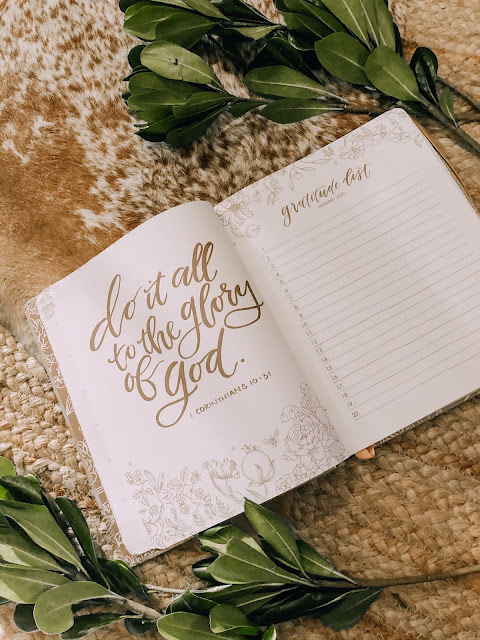 do it all
to the glory
of god.
1 CORINTHIANS 10:31
gratitude list
1
2
3
4
5
6
7
8
9
10
11
12
13
14
15
16
17
18
19
20